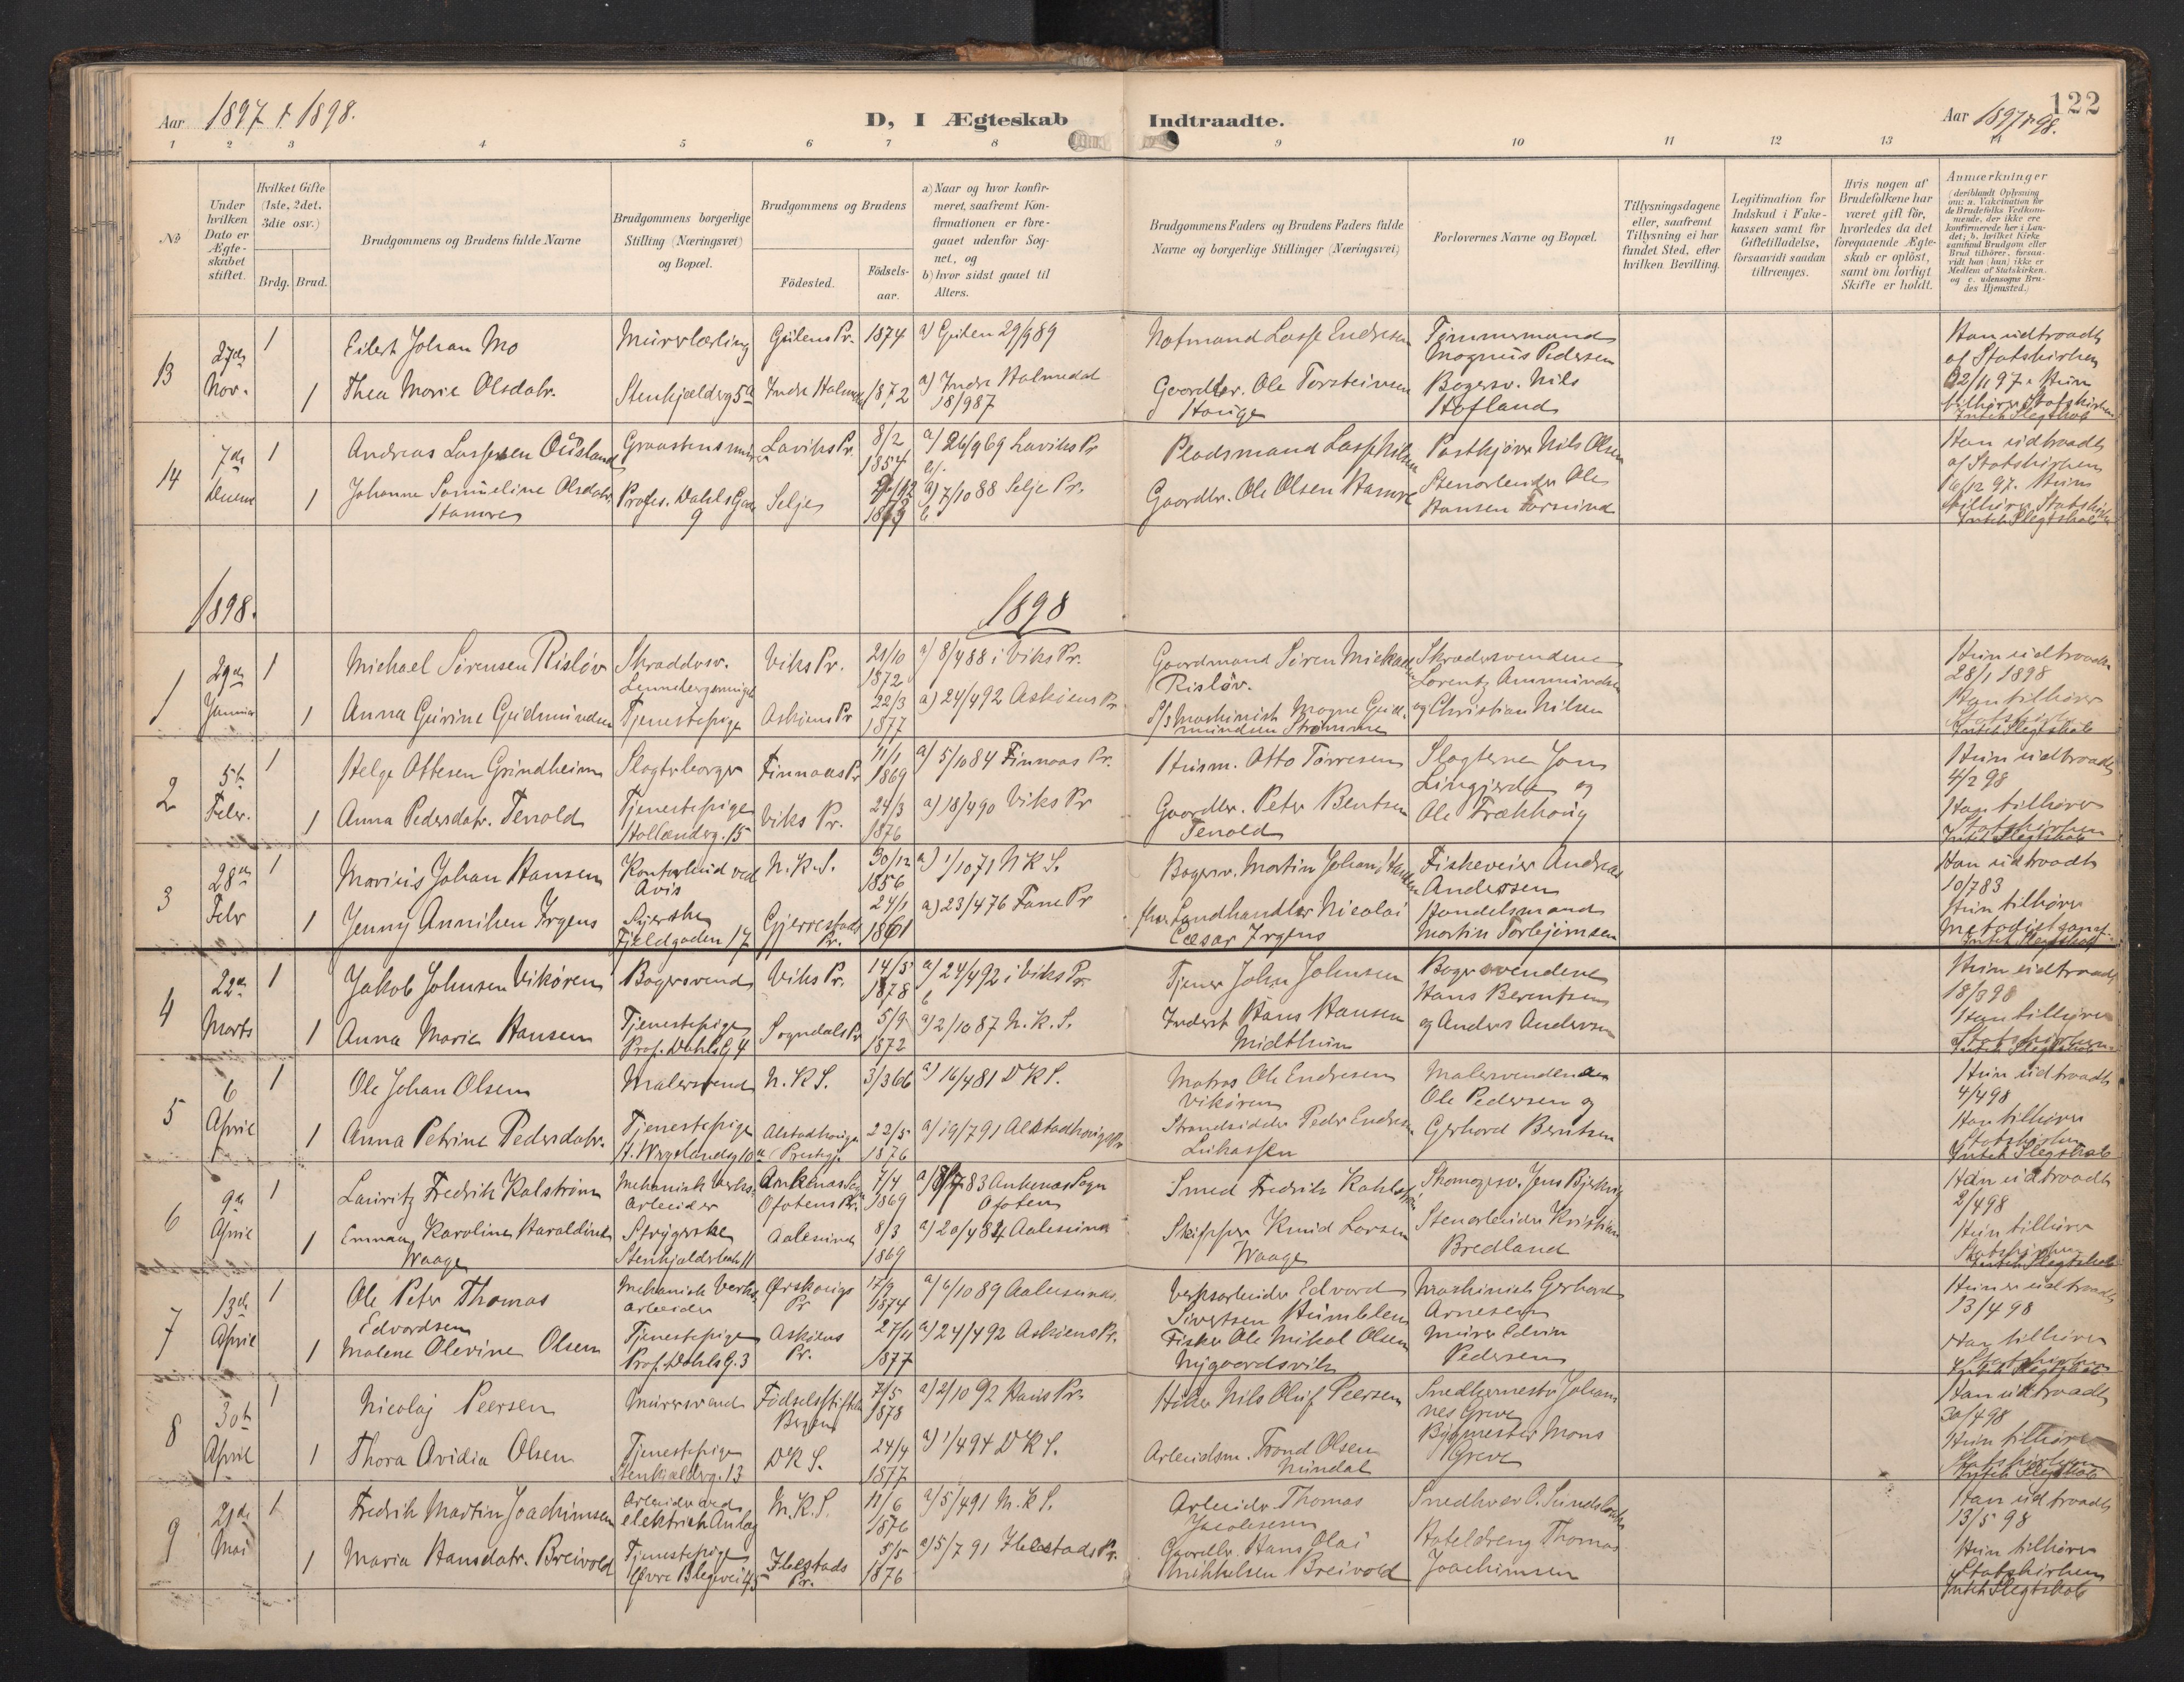 Aar 1897 & 1898.
D, I Ægteskab Indtraadte.
Aar 1897 & 98.
122
1 2 3 4 5 6 7 8 9 10 11 12 13 14
No
Under hvilken Dato er Ægteskabet stiftet.
Hvilket Gifte (1ste, 2det, 3die osv.)
Brdg. Brud.
Brudgommens og Brudens fulde Navne
Brudgommens borgerlige Stilling (Næringsvei) og Bopæl.
Brudgommens og Brudens
Födested.
Födsels-aar.
a) Naar og hvor konfirmeret, saafremt Konfirmationen er foregaaet udenfor Sognet, og
b) hvor sidst gaaet til Alters.
Brudgommens Faders og Brudens Faders fulde Navne og borgerlige Stillinger (Næringsvei)
Forlovernes Navne og Bopæl.
Tillysningsdagene eller, saafremt Tillysning ei har fundet Sted, efter hvilken Bevilling.
Legitimation for Indskud i Enkekassen samt for Giftetilladelse, forsaavidt saadan tiltrænges.
Hvis nogen af Brudefolkene har været gift för, hvorledes da det foregaaende Ægteskab er oplöst, samt om lovligt Skifte er holdt.
Anmærkninger
(deriblandt Oplysning om: a. Vakcination for de Brudefolks Vedkommende, der ikke ere konfirmerede her i Landet; b. hvilket Kirkesamfund Brudgom eller Brud tilhörer, forsaavidt han (hun) ikke er Medlem af Statskirken. og c. udensogns Brudes Hjemsted.)
13 27de Nov. 1 Eilert Johan Mo Murerlærling Gulens Pr. 1874 a) Gulen 29/9 89 Notmand Lasse Endresen Tømmermand Magnus Pedersen Han udtraadte af Statskirken
1 Thea Marie Olsdatr. Stenkjælderg 5a Indre Holmedal 1872 a) Indre Holmedal 18/9 87 Gaardbr. Ole Torsteinsen Hauge Bagersv. Nils Hofland 22/11 97. Hun tilhører Statskirken Intet Slegtskab
14 7de 1 Andreas Lassesen Ousland Graastensmurer Laviks Pr. 8/2 1854 a) 26/9 69 Laviks Pr Pladsmand Lasse Nilsen Postkjører Nils Olsen Han udtraadte af Statskirken
1 Johanne Samueline Olsdatr. Hamre Profes. Dahls Gade 9 Selje a) 7/10 88 Selje Pr. Gaardbr. Ole Olsen Hamre Stenarbeider Ole Hansen Hun tilhører Statskirken Intet Slegtskab
1898. 1898
1 29de Januar 1 Michael Sørensen Risløv Skræddersv. Viks Pr. 21/10 1872 a) 8/4 88 i Viks Pr. Gaardmand Søren Mickalsen Risløv. Skrædersvendene Lorentz Ammundsen Hun udtraadte 28/1 1898
1 Anna Gurine Gudmundsen Tjenestepige Askøens Pr 22/3 1877 a) 24/4 92 Askøens Pr Maskinist Magne Gudmundsen Strømme og Christian Nilsen Han tilhører Statskirken Intet Slegtskab
2 5te Febr. 1 Helge Ottesen Grindheim Slagterborger Finnaas Pr 11/1 1869 a) 5/10 84 Finnaas Pr. Husm. Otto Tørresen Slagterne Jon Lingjerde og Hun udtraadte 4/2 98
1 Anna Pedersdatr. Tenold Tjenestepige Hollænderg. 15 Viks Pr. 24/3 1876 a) 18/4 90 Viks Pr Gaardbr. Peter Bentsen Tenold Ole Trækhaug Han tilhører Statskirken Intet Slegtskab
3 28de Febr 1 Marius Johan Hansen Kontorbud ved Avis N. K. S. 30/12 1856 a) 1/10 71 N K S. Bagersv. Martin Johan Hansen Fiskeveier Andreas Andersen Han udtraadte 10/7 83
1 Jenny Anniken Irgens Fjeldgaden 17 Gjerrestads Pr. 24/1 1861 a) 23/4 76 Fane Pr Landhandler Nicolai Cæsar Irgens Handelsmand Martin Torbjørnsen Hun tilhører Metodistsamf. Intet Slegtskab
4 22de Marts 1 Jakob Johnsen Vikøren Bagersvend Viks Pr. 14/5 1878 a) 24/4 92 i Viks Pr. b Tjener John Johnsen Bagersvendene Hans Berentsen Hun udtraadte 18/3 98
1 Anna Marie Hansen Tjenestepige Prof. Dahls G. 4 Sogndals Pr 5/9 1872 a) 2/10 87 N. K. S. Inderst Hans Hansen Midthun og Anders Andersen Han tilhører Statskirken Intet Slegtskab
5 6 April 1 Ole Johan Olsen Malersvend N. K S. 3/3 66 a) 16/4 81 D K S. Matros Ole Endresen Vikøren Malersvendene Ole Pedersen og Hun udtraadte 4/4 98
1 Anna Petrine Pedersdatr. Tjenestepige Alstadhaugs Prestgj. 22/5 1876 a) 19/7 91 Alstadhaugs Pr Strandsidder Peder Endresen Lukassen Gerhard Berntsen Han tilhører Statskirken Intet Slegtskab
6 9de April 1 Lauritz Fredrik Kalstrøm Mekanisk Verks. Arbeider Ankenas Sogn Ofotens Pr. 7/4 1869 a) 8/7 83 Ankenas Sogn Ofoten Smed Fredrik Kahlstrøm Skomagersv. Jens Han udtraadte 2/4 98
1 Emma Karoline Haraldine Waage Strygerske Stenkjælderbak 11 Aalesund 8/3 1869 a) 20/4 84 Aalesund Skipper Knud Larsen Waage Stenarbeider Kristian Bredland Hun tilhører Statskirken Intet Slegtskab
7 13de April 1 Ole Peter Thomas Edvardsen Mekanisk Verks. Arbeider Ørskougs Pr 17/9 1874 a) 6/10 89 Aalesunds. Verksarbeider Edvard Sivertsen Humblen Maskinist Gerhard Arnesen Hun er udtraadt 13/4 98
1 Malene Olevine Olsen Tjenestepige Prof. Dahls G. 3 Askøens Pr. 27/11 1877 a) 24/4 92 Askøens Pr. Fisker Ole Mikal Olsen Nygaardsvik Murer Edvin Pedersen Han tilhører Statskirken Intet Slegtskab
8 30te April 1 Nicolaj Peersen Murersvend Fødselsstiftelsen Bergen 7/5 1878 a) 2/10 92 Haus Pr. Høker Nils Oluf Peersen Snedkermester Johannes Greve Han udtraadte 30/4 98
1 Thora Ovidia Olsen Tjenestepige Stenkjælderg. 13 D K S. 24/4 1877 a) 1/4 94 D K S. Arbeidsm. Trond Olsen Mundal Bygmester Mons Greve Hun tilhører Statskirken Intet Slegtskab
9 21de Mai 1 Fredrik Martin Joachimsen Arbeider ved elektrisk Anlæg N. K. S. 11/6 1876 a) 5/4 91 N. K S. Arbeider Thomas Jacobsen Snedker O. Han udtraadte 13/5 98
1 Maria Hansdatr. Breivold Tjenestepige Øvre Blegevei 45 Ibestads Pr. 5/5 1876 a) 5/7 91 Ibestads Pr. Gaardbr. Hans Olai Mikkelsen Breivold Hoteldreng Thomas Joachimsen Hun tilhører Statskirken Intet Slegtskab